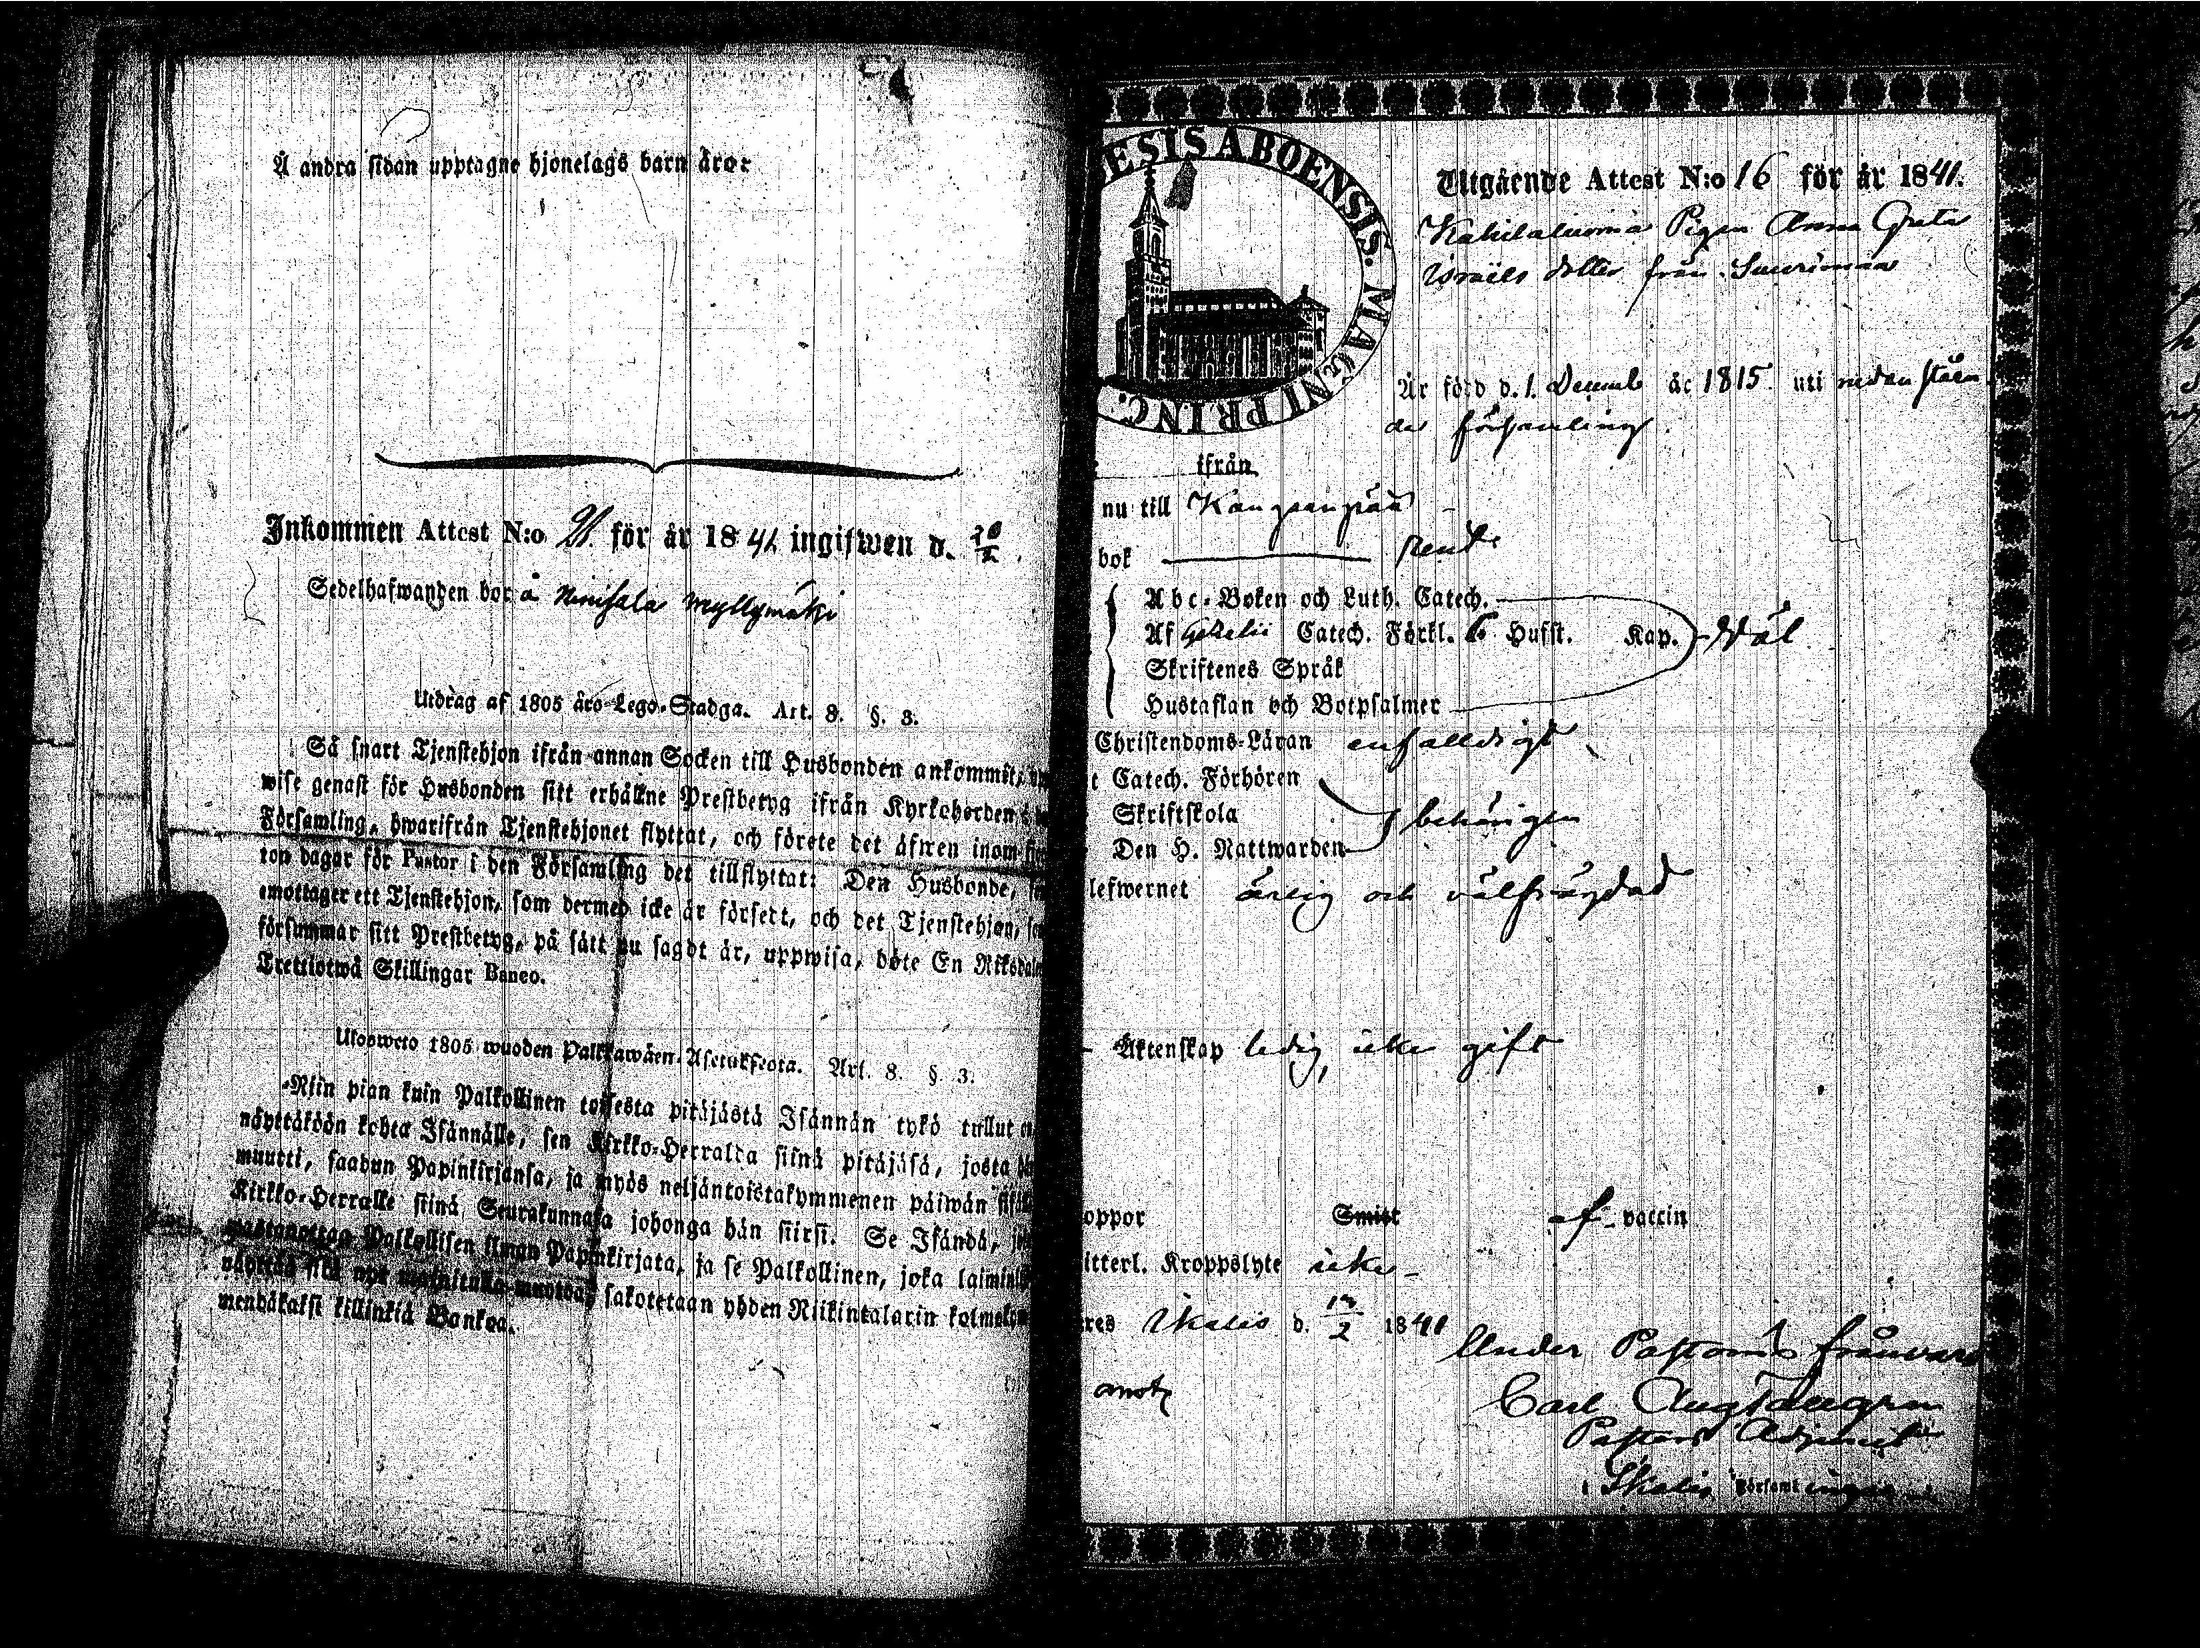 Å andra sidan upptagne hjonelags barn äro:
Inkommen Attest N:o 21. för år 1841 ingifwen d. 20/2.
Sedelhafwanden bor å Niinisala Myllymäki
Utdrag af 1805 års Lego-Stadga. Art. 8. §. 3.
Så snart Tjenstehjon ifrån annan Socken till Husbonden ankommit,
wise genast för Husbonden sitt erhållne Prestbetyg ifrån Kyrkoherden i
Församling, hwarifrån Tjenstehjonet flyttat, och förete det äfwen inom
ton dagar för Pastor i den Församling det tillflyttat: Den Husbonde,
emottager ett Tjenstehjon, som dermed icke är försedt, och det Tjenstehjon,
försummar sitt Prestbetyg, på sätt nu sagdt är, uppwisa, böte En Riksdaler
Trettiotwå Skillingar Banco.
Ulosweto 1805 wuoden Palkkawäen-Asetuksesta. Art. 8. §. 3.
Niin pian kuin Palkollinen toisesta pitäjästä Isännän tykö tullut on
näyttäköön kohta Isännälle, sen Kirkko-Herralta siinä pitäjäsä, josta hän
muutti, saadun Papinkirjansa, ja myös neljäntoistakymmenen päiwän sisällä
Kirkko-Herralle siinä Seurakunnasa johonga hän siirsi. Se Isändä,
wastanottaa Palkollisen ilman Papinkirjata, ja se Palkollinen, joka laiminlyö
näyttää sitä nyt mainitulla muotoa, sakotetaan yhden Riikintalarin kolmekym
mendäkaksi killinkiä Bankoa.
ESIS ABOENSIS. MAGNI PRINC.
Utgående Attest N:o 16 för år 1841.
Pigan Anna Greta
Israels dotter från Suurimaa
Är född d. 1. Decemb år 1815. uti nedanståen
de församling
ifrån
nu till Kangasniemi
bok
Abc-Boken och Luth. Catech.
Af Gezelii Catech. Förkl. 6 Husst. Kap. Väl
Skriftenes Språk
Hustaflan och Botpsalmer
Christendoms-Läran enfalldigt
t Catech. Förhören
Skriftskola behörigen
Den H. Nattwarden
lefwernet ärlig och välfrägdad
Äktenskap ledig, icke gift
oppor Smitt af vaccin
itterl. Kroppslyte icke
res Ikalis d. 17/2 1841
Under Pastoris frånvaro
Carl Aug
Pastors Adjunct
i Ikalis Församlingen